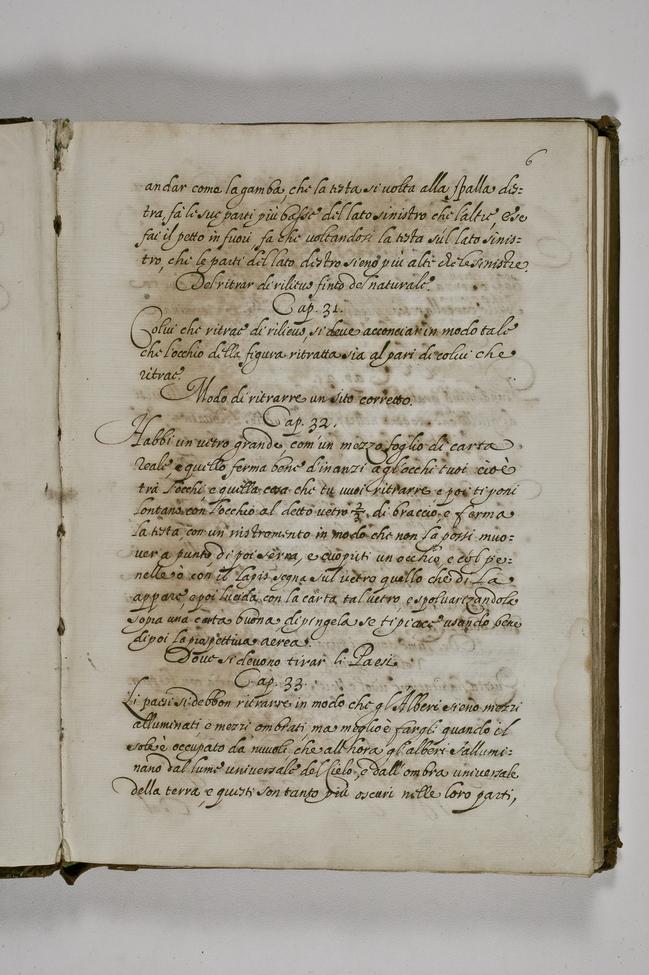 6
andar come la gamba, che la testa si volta alla spalla des:
tra, fà le sue parti più basse del lato sinistro che l'altre e se
fai il petto in fuori, fa che voltandosi la testa sul lato sinis:
tro, che le parti del lato destro sieno più alte che le sinistre.
Del ritrar di rilieuo finto del naturale.
Cap. 31.
Colui che ritrae di rilieuo, si deue acconciar in modo tale
che l'occhio della figura ritratta sia al pari di colui che
ritrae.
Modo di ritrarre un sito corretto.
Cap. 32.
Habbi un uetro grande com'un mezzo foglio di carta
reale, e quello ferma bene d'inanzi a gl'occhi tuoi cioè
trà l'occhi e quilla cosa che tu uuoi ritrarre e poi ti poni
lontano con l'occhio al detto uetro 2/3 di braccio, e ferma
la testa con un instromento in modo che non la possi muo:
uer a punto, di poi serra, e cuopriti un occhio e col pe:
nello ò con il lapis segna sul uetro quello che di là
appare e poi lucida con la carta tal uetro, e spoluarizandolo
sopra una carta buona dipingela se ti piace usando bene
di poi la prospettiua aerea.
Doue si deuono tirar li Paesi.
Cap. 33.
Li paesi si debbon ritrarre in modo che gl'Alberi sieno mezzi
alluminati e mezzi ombrati, ma meglio è fargli quando il
sole è occupato da nuuoli che all'hora gl'alberi s'allumi:
nano dal lume uniuersale del Cielo, e dall'ombra uniuersale
della terra, e questi son tanto più oscuri nelle loro parti,